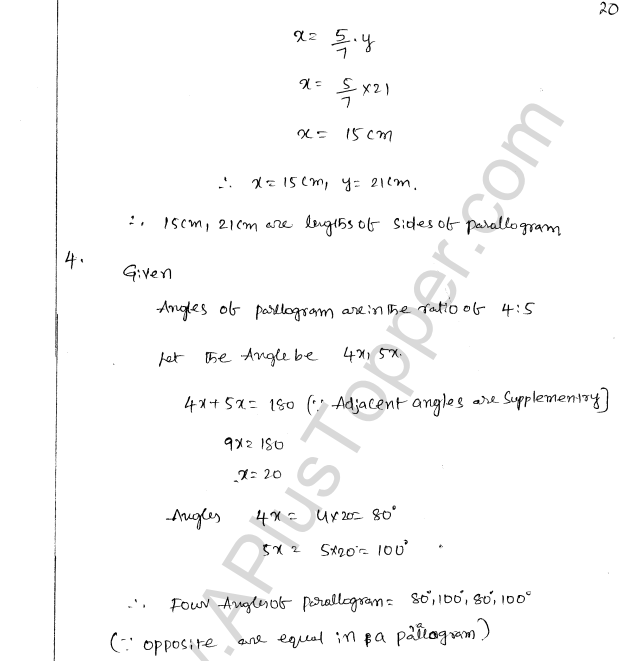 20
x = 5/7 · y
x = 5/7 × 21
x = 15 cm
∴ x = 15 cm, y = 21 cm.
∴ 15cm, 21cm are lengths of sides of parallogram
4.
Given
Angles of parllogram are in the ratio of 4:5
Let the Angle be 4x, 5x.
4x + 5x = 180 (∵ Adjacent angles are supplementry)
9x = 180
x = 20
Angles 4x = 4×20 = 80°
5x = 5×20 = 100°
∴ Four Angles of parallogram = 80°, 100°, 80°, 100°
(∵ opposite are equal in a pallagram)
www.APlusTopper.com